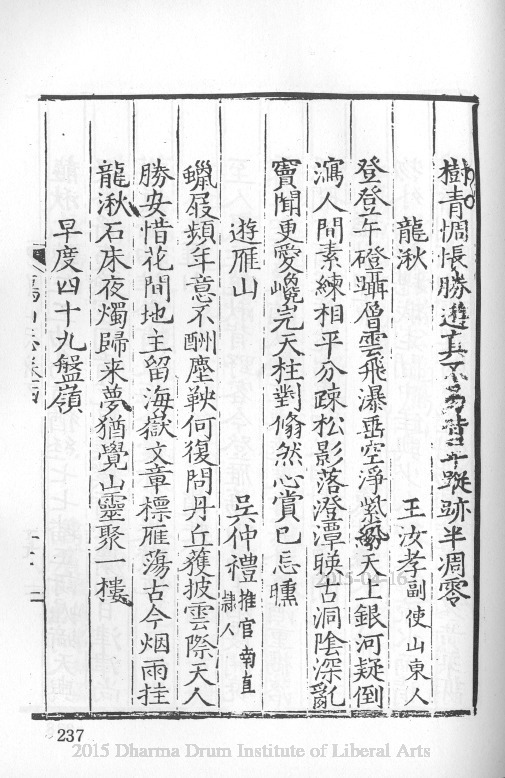 樹青惆悵勝遊真不易昔年蹤跡半凋零
龍湫
王汝孝副使山東人
登登午磴躡層雲飛瀑垂空淨紫氛天上銀河疑倒
瀉人間素練相平分疎松影落澄潭暎古洞陰深亂
竇聞更愛巉岏天柱對翛然心賞已忘曛
遊雁山
吳仲禮推官南直隸人
蠟屐頻年意不酬塵鞅何復問丹丘蘿披雲際天人
勝安惜花間地主留海嶽文章標雁蕩古今烟雨挂
龍湫石床夜燭歸來夢猶覺山靈聚一樓
早度四十九盤嶺
237
2015-04-16
2015 Dharma Drum Institute of Liberal Arts